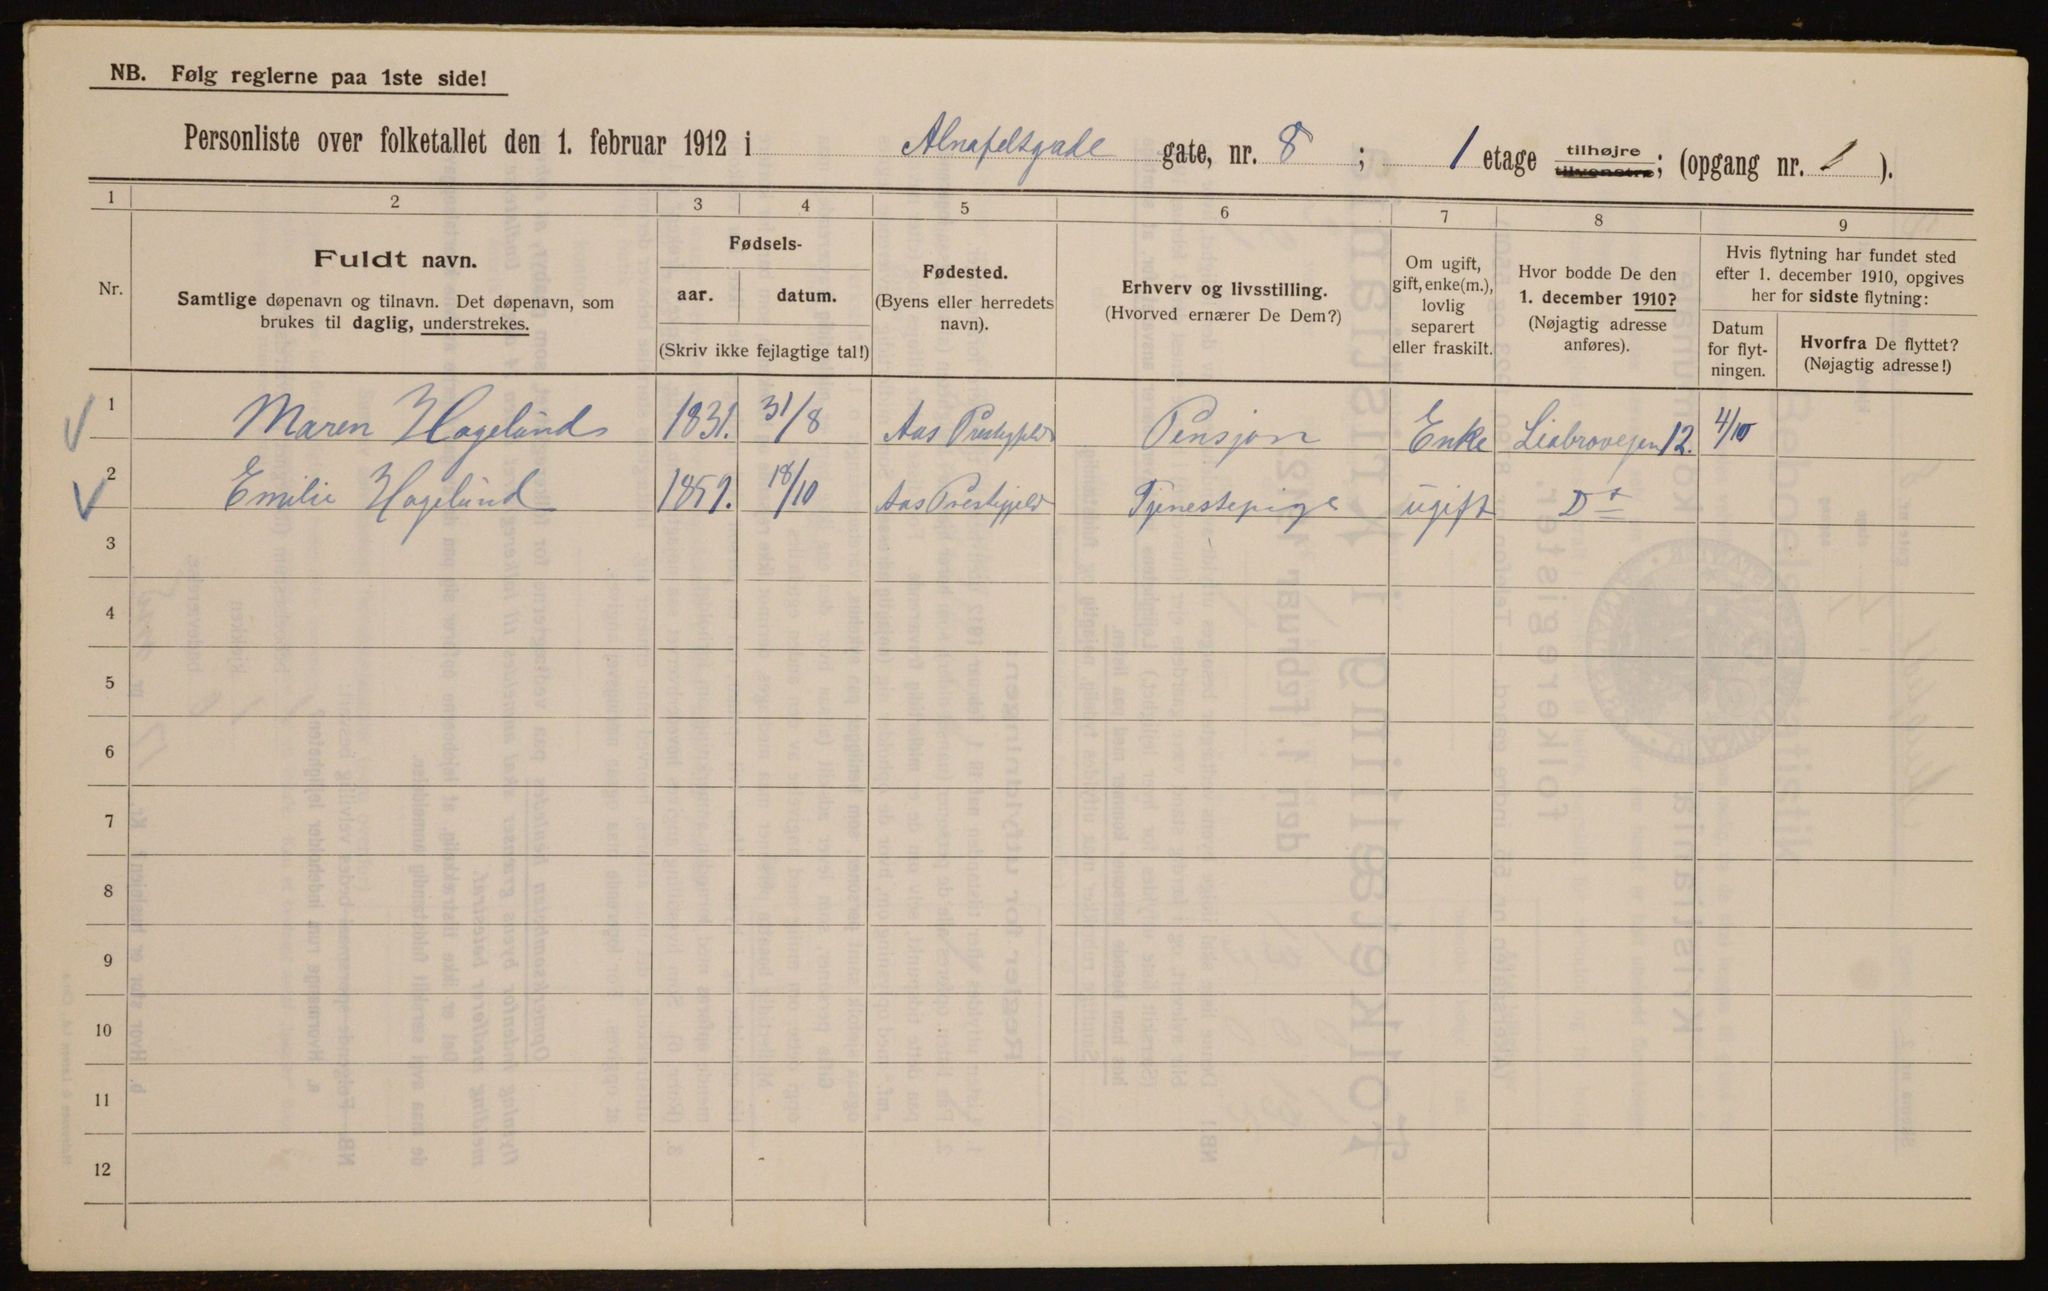 NB. Følg reglerne paa 1ste side!
Personliste over folketallet den 1. februar 1912 i Alnafeltsgade gate, nr. 8 ; 1 etage tilhøjre tilvenstre; (opgang nr. 1 ).
1 2 3 4 5 6 7 8 9
Nr.
Fuldt navn.
Samtlige døpenavn og tilnavn. Det døpenavn, som
brukes til daglig, understrekes.
Fødsels-
aar. datum.
(Skriv ikke fejlagtige tal!)
Fødested.
(Byens eller herredets
navn).
Erhverv og livsstilling.
(Hvorved ernærer De Dem?)
Om ugift,
gift, enke(m.),
lovlig
separert
eller fraskilt.
Hvor bodde De den
1. december 1910?
(Nøjagtig adresse
anføres).
Hvis flytning har fundet sted
efter 1. december 1910, opgives
her for sidste flytning:
Datum
for flyt-
ningen.
Hvorfra De flyttet?
(Nøjagtig adresse!)
1 Maren Hagelund 1831. 31/8 Aas Prestegjeld Pensjon Enke Liabrovejen 12. 4/10
2 Emilie Hagelund 1859. 18/10 Aas Prestegjeld Tjenestepige ugift Do
3
4
5
6
7
8
9
10
11
12